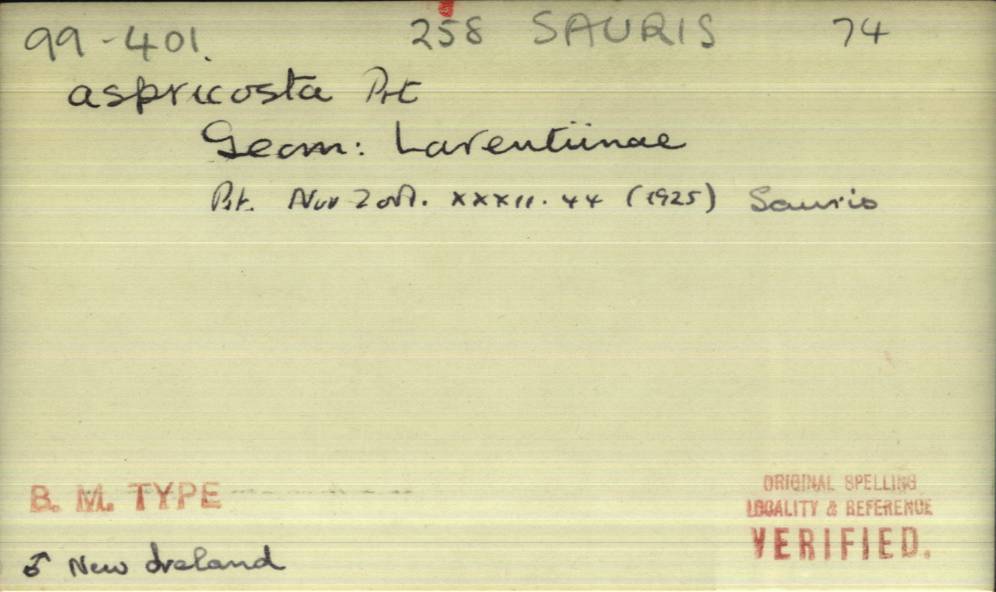 99-401. 258 SAURIS 74
aspricosta Prt
Geom: Larentiinae
Prt. Nov Zool. xxxii. 44 (1925) Sauris
B. M. TYPE
ORIGINAL SPELLING
LOCALITY & REFERENCE
VERIFIED.
♂ New Ireland